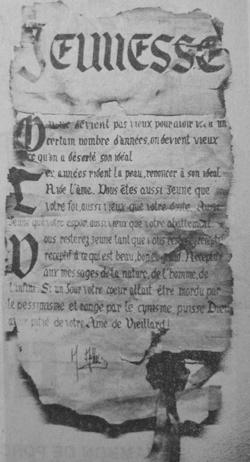 JEUNESSE
On ne devient pas vieux pour avoir vécu un
certain nombre d'années, on devient vieux
ce qu'on a déserté son idéal
Les années rident la peau, renoncer à son idéal
Ride l'âme. Vous êtes aussi jeune que
votre foi, aussi vieux que votre doute. Aussi
Jeune que votre espoir, aussi vieux que votre abattement
Vous resterez jeune tant que vous resterez réceptif
réceptif à ce qui est beau, bon et grand. Réceptif
aux messages de la nature, de l'homme, de
l'infini. Si un jour votre coeur allait être mordu par
le pessimisme et rongé par le cynisme, puisse Dieu
avoir pitié de votre Ame de Vieillard!